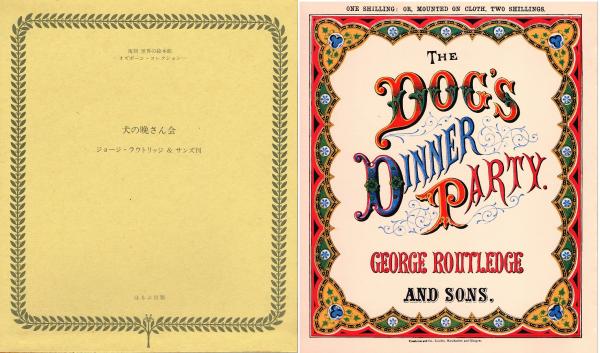 復刻 世界の絵本館
－オズボーン・コレクション－
犬の晩さん会
ジョージ・ラウトリッジ & サンズ刊
ほるぷ出版
ONE SHILLING: OR, MOUNTED ON CLOTH, TWO SHILLINGS.
THE
DOG'S
DINNER
PARTY.
GEORGE ROUTLEDGE
AND SONS.